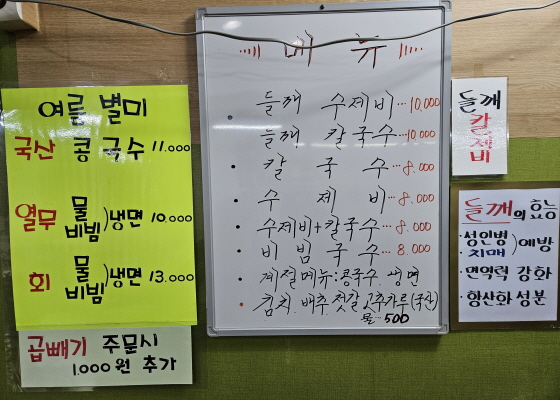 여름 별미
국산 콩국수 11.000
열무 물 비빔 ) 냉면 10.000
회 물 비빔 ) 냉면 13.000
곱빼기 주문시
1.000원 추가
메뉴
들깨 수제비···10.000
들깨 칼국수···10.000
칼국수···8.000
수제비···8.000
수제비+칼국수···8.000
비빔국수···8.000
계절메뉴:콩국수. 냉면
김치. 배추. 젓갈. 고추가루(국산)
물··500
들깨
칼제비
들깨의 효능
·성인병
·치매 ) 예방
·면역력 강화
·항산화 성분